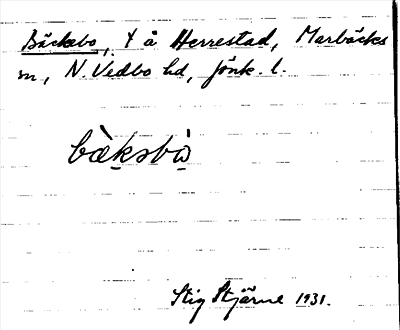 Bäckebo, t å Herrestad, Marbäcks
sn, N. Vedbo hd, Jönk. l.
bæ̀ksbò
Stig Stjärne 1931.